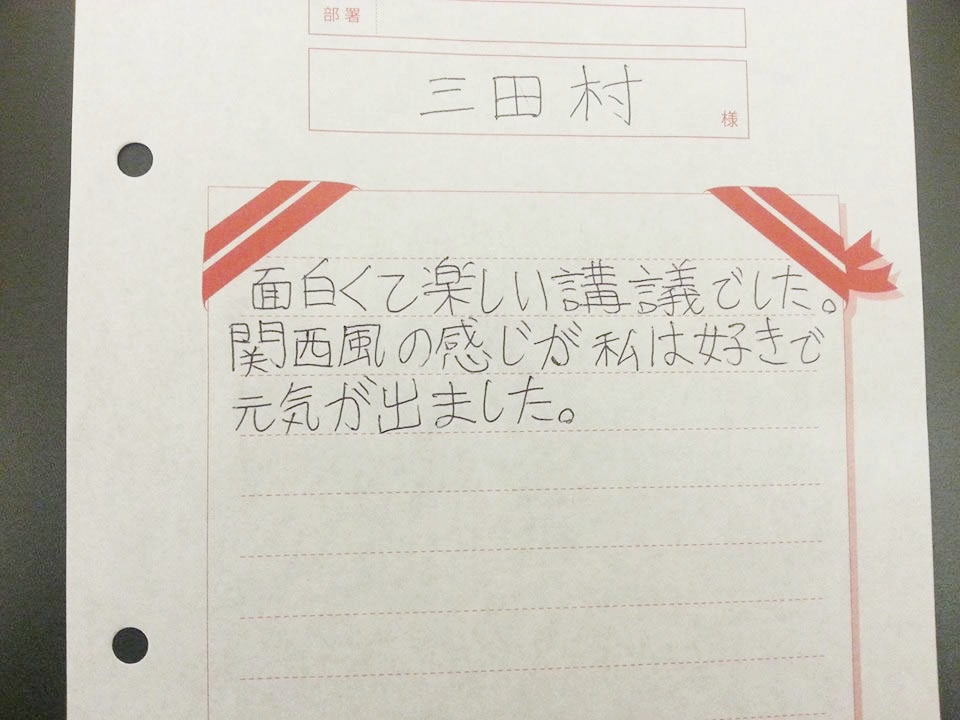 部署
三田村 様
面白くて楽しい講議でした。
関西風の感じが私は好きで
元気が出ました。